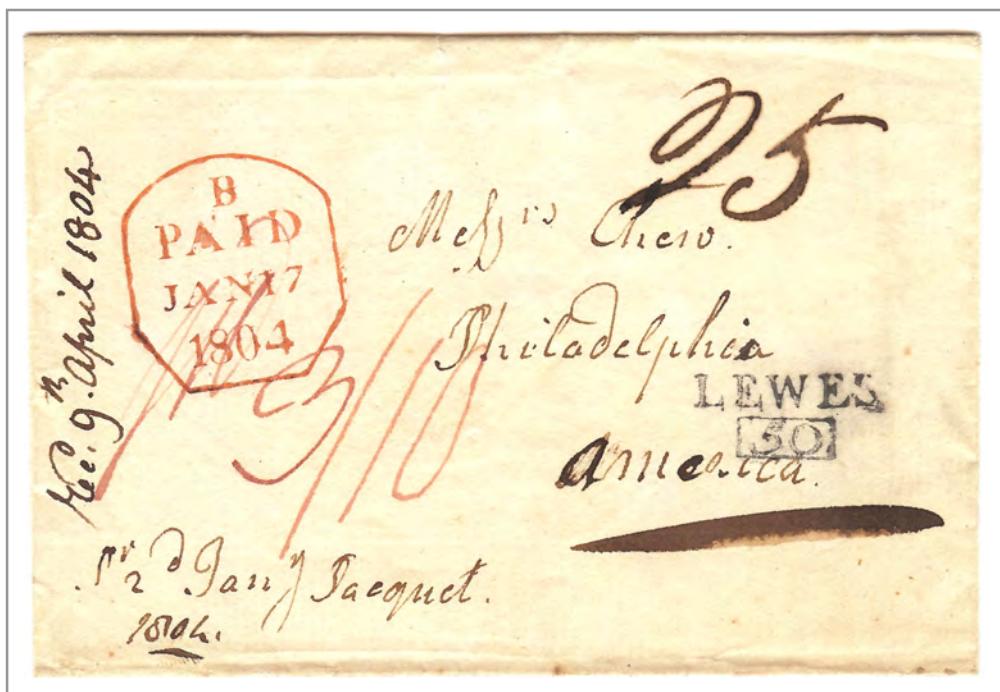 25
Rec. 9th April 1804
B
PAID
JAN 17
1804
3/10
Messrs Chew.
Philadelphia
LEWES
50
America.
Pr 2d Jany Pacquet.
1804.